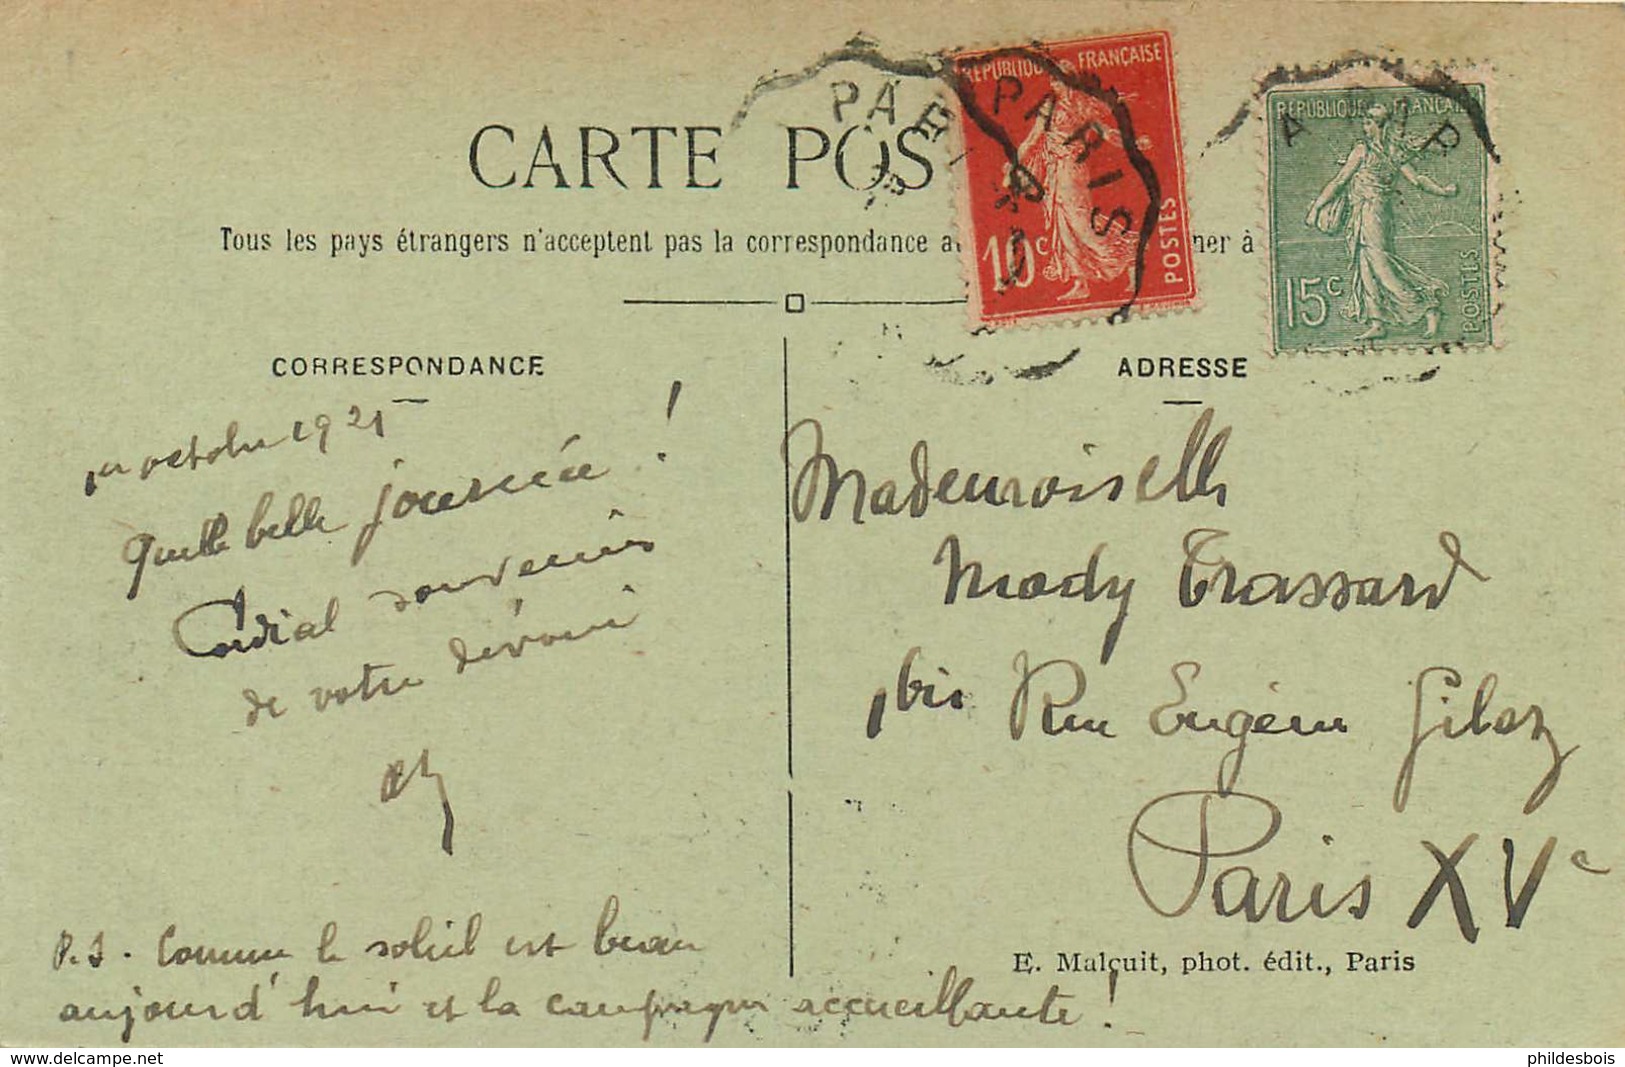 CARTE POS
Tous les pays étrangers n'acceptent pas la correspondance a ner à
RÉPUBLIQUE FRANÇAISE
10c
POSTES
PARIS
PARIS
RÉPUBLIQUE FRANÇAISE
15c
POSTES
CORRESPONDANCE
1er octobre 1921
Quelle belle journée !
Cordial souvenir
de votre dévoué
P.S. Comme le soleil est beau
aujourd'hui et la campagne accueillante !
ADRESSE
Mademoiselle
Mady Trassard
1bis Rue Eugène Gibez
Paris XVe
E. Malcuit, phot. édit., Paris
delcampe.net
phildesbois